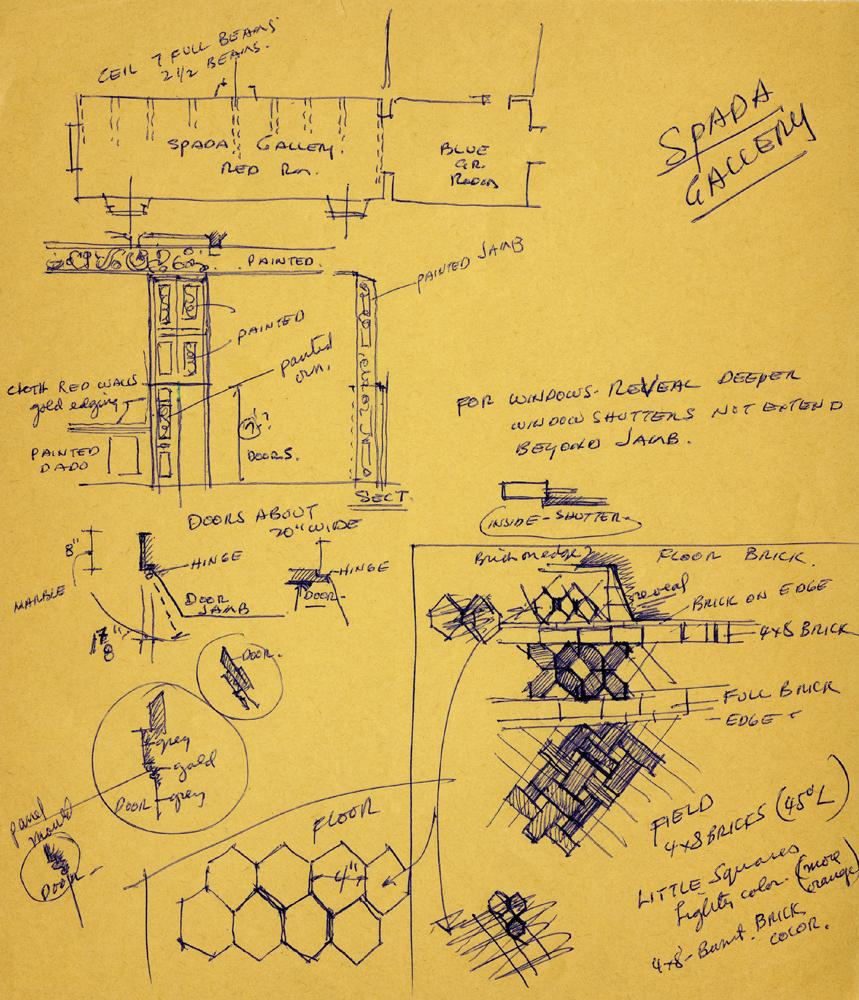 CEIL 7 FULL BEAMS
2 1/2 BEAMS.
SPADA GALLERY.
RED RM.
BLUE
GR.
ROOM
SPADA
GALLERY
PAINTED.
PAINTED JAMB
PAINTED
painted
orn.
CLOTH RED WALLS
gold edging
PAINTED
DADO
7'?
DOORS.
SECT.
FOR WINDOWS - REVEAL DEEPER
WINDOW SHUTTERS NOT EXTEND
BEYOND JAMB.
INSIDE - SHUTTER
DOORS ABOUT
20" WIDE
8"
MARBLE
HINGE
DOOR
JAMB
17"
8
HINGE
DOOR.
DOOR.
grey
gold
DOOR - grey
panel
mould
DOOR
Brick on edge?
FLOOR BRICK.
reveal
BRICK ON EDGE
4x8 BRICK
FULL BRICK
EDGE
FIELD
4x8 BRICKS (45° L)
LITTLE Squares
Lighter color (more
orange)
4x8 - Burnt. BRICK
COLOR.
FLOOR
4"